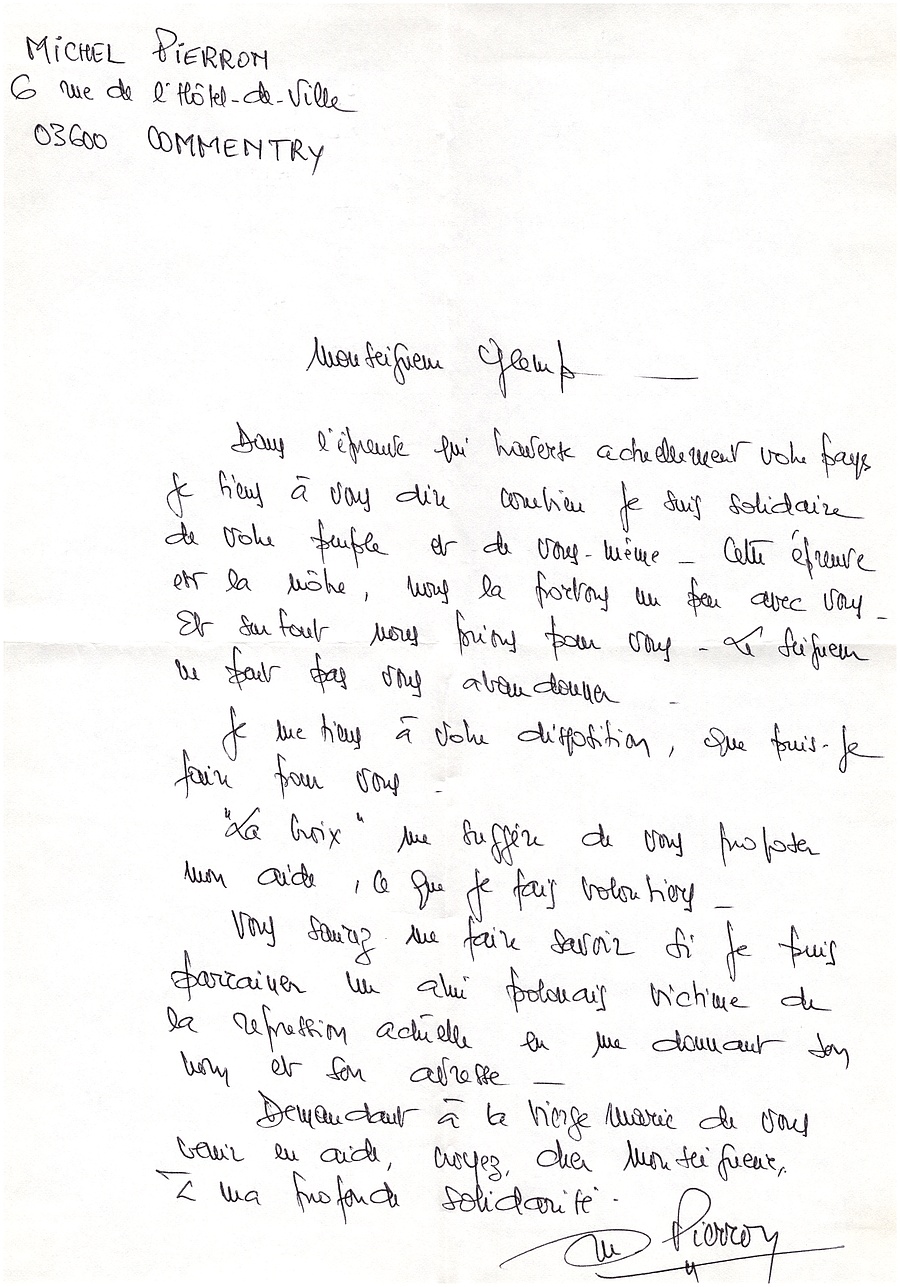 MICHEL PIERRON
6 rue de l'Hôtel-de-Ville
03600 COMMENTRY
Monseigneur Glemp
Dans l'épreuve qui traverse actuellement votre pays
je tiens à vous dire combien je suis solidaire
de votre peuple et de vous-même - Cette épreuve
est la nôtre, nous la portons un peu avec vous -
Et surtout nous prions pour vous - Le Seigneur
ne peut pas vous abandonner -
Je me tiens à votre disposition, que puis-je
faire pour vous -
"La Croix" me suggère de vous proposer
mon aide, ce que je fais volontiers -
Vous saurez me faire savoir si je puis
parrainer un ami polonais victime de
la répression actuelle en me donnant son
nom et son adresse -
Demandant à la Vierge Marie de vous
venir en aide, croyez, cher Monseigneur,
à ma profonde solidarité.
M Pierron